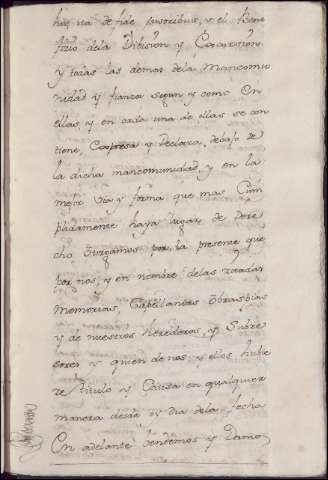 hoc ita de fide Jusoribus, y el Bene
ficio dela Dibision, y Escursion,
y todas las demas dela Mancomu
nidad y fianza segun y como en
ellas, y en cada una de ellas se con
tiene, Expresa y Declara, debajo de
la dicha mancomunidad, y en la
mejor via y forma que mas Cum
plidamente haya lugar de Dere
cho Otorgamos por la presente que
por nos, y en nombre delas citadas
Memorias, Capellanias, Obras pias
y de nuestros herederos, y Subce
sores y quien de nos, y ellos hubie
re titulo y Causa en qualquier
manera desde oy Dia dela fecha
En adelante Vendemos y Damos